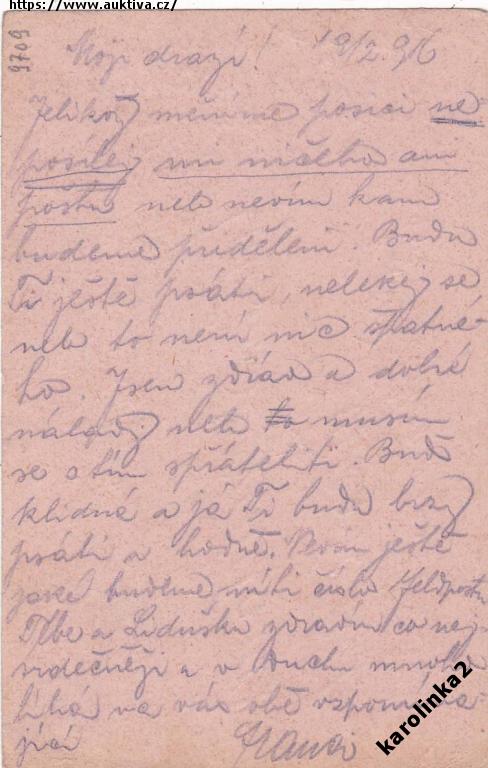 https://www.auktiva.cz/
9709
Moji drazí! 19/2.916
Jelikož měníme posici ne-
posílej mi ničeho ani
poštu neb nevím kam
budeme přiděleni. Budu
Ti ještě psáti, nelekej se
neb to není nic špatné-
ho. Jsem zdráv a dobré
nálady neb to musím
se s tím spřáteliti. Buď
klidná a já Ti budu brzy
psáti a hodně. Nevím ještě
jaké budeme míti číslo Feldpostu
Tebe a Lidušku zdravím co nej-
srdečněji a v duchu mnoho
líbá na vás obě vzpomína-
jící
karolinka2